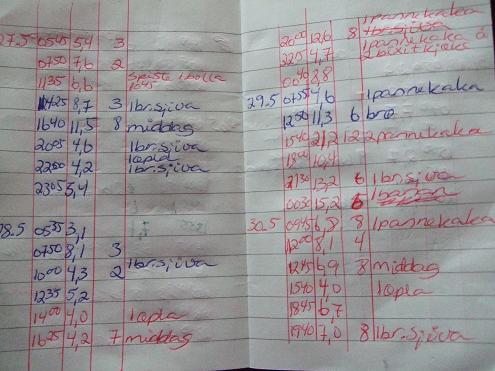 27.5 0545 5,4 3
0750 7,6 2
1135 6,6 1 bolla
1425 8,7 3 1br.sjiva
1640 11,5 8 middag
2005 4,6 1br.sjiva
2200 4,2 1br.sjiva
2305 5,4
28.5 0535 3,1
0750 8,1 3
1000 4,3 2 1br.sjiva
1235 5,2
1400 4,0 1opla
1625 4,2 7 middag
1pannekaka
2000 12,6 8
2205 4,7 1pannekaka &
0040 8,8
29.5 0755 4,6 1pannekaka
1200 11,3 6 brø
1540 21,2 12 2pannekaka
1800 10,4
2130 13,2 6 1br.sjiva
0030 15,2 6
30.5 0945 6,8 8 1pannekaka
1200 8,1 4
1245 6,9 8 middag
1540 4,0 1opla
1845 6,7
1940 7,0 8 1br.sjiva